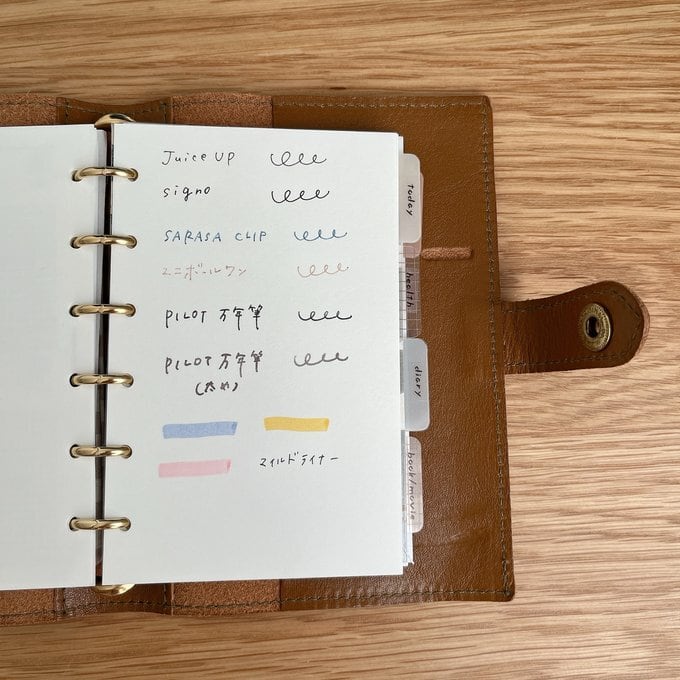 Juice UP
signo
SARASA CLIP
ユニボールワン
PILOT 万年筆
PILOT 万年筆
マイルドライナー
today
health
diary
book/movie